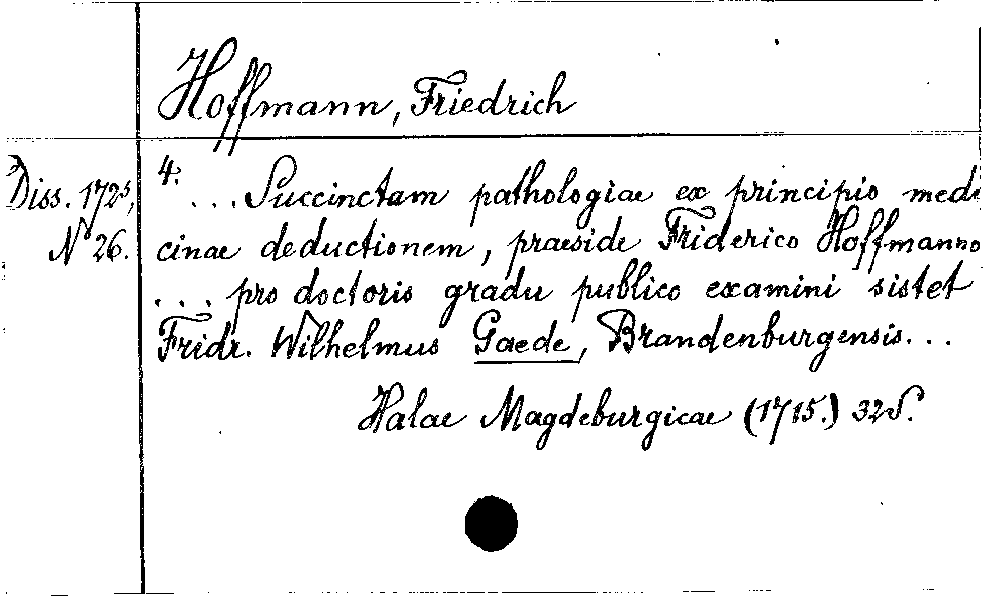 Hoffmann, Friedrich
Diss. 1725,
N 26.
4:
... Succinctam pathologiae ex principio medi
cinae deductionem, praeside Friderico Hoffmanno
... pro doctoris gradu publico examini sistet
Fridr. Wilhelmus Gaede, Brandenburgensis...
Halae Magdeburgicae (1715.) 32 S.